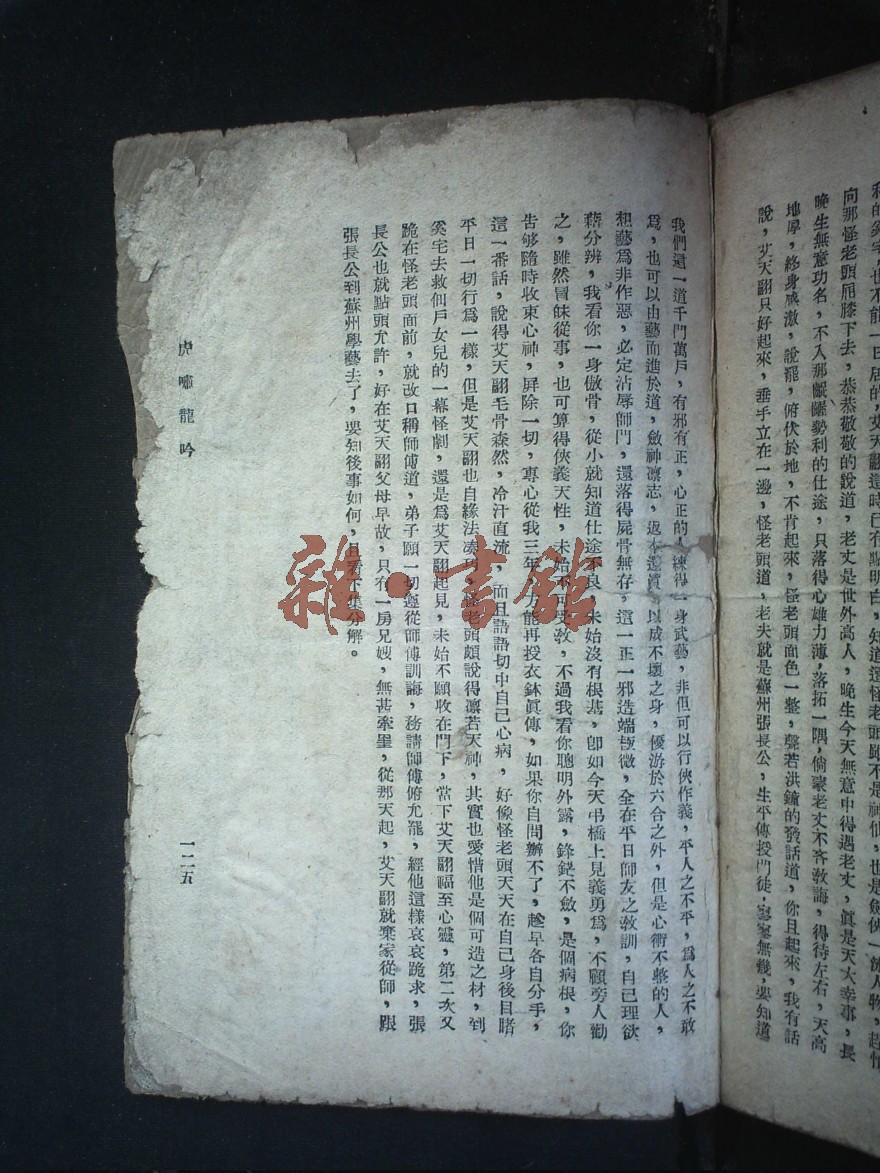 向那怪老頭屈膝下去，恭恭敬敬的說道，老丈是世外高人，晚生今天無意中得遇老丈，眞是天大幸事，長
晚生無意功名，不入那齷齪勢利的仕途，只落得心雄力薄，落拓一隅，倘蒙老丈不吝敎誨，得待左右，天高
地厚，終身感激，說罷，俯伏於地，不肯起來，怪老頭面色一整，聲若洪鐘的發話道，你且起來，我有話
說，艾天翮只好起來，垂手立在一邊，怪老頭道，老夫就是蘇州張長公，生平傳授門徒，寥寥無幾，要知道
我們這一道千門萬戶，有邪有正，心正的人練得一身武藝，非但可以行俠作義，平人之不平，爲人之不敢
爲，也可以由藝而進於道，斂神凛志，返本還眞，以成不壞之身，優游於六合之外，但是心術不整的人，
想藝爲非作惡，必定沾辱師門，還落得屍骨無存，這一正一邪造端極微，全在平日師友之敎訓，自己理欲
藉分辨，我看你一身傲骨，從小就知道仕途不良，未始沒有根基，卽如今天弔橋上見義勇爲，不顧旁人勸
之，雖然冒昧從事，也可算得俠義天性，未始不可要敎，不過我看你聰明外露，鋒鋩不斂，是個病根，你
告够隨時收束心神，屏除一切，專心從我三年，方能再授衣鉢眞傳，如果你自問辦不了，趁早各自分手，
這一番話，說得艾天翮毛骨森然，冷汗直流，而且語語切中自己心病，好像怪老頭天天在自己身後目睹
平日一切行爲一樣，但是艾天翮也自緣法凑巧，怪老頭頗說得凛若天神，其實也愛惜他是個可造之材，到
奚宅去救佃戶女兒的一幕怪劇，還是爲艾天翮起見，未始不願收在門下，當下艾天翮福至心靈，第二次又
跪在怪老頭面前，就改口稱師傅道，弟子願一切遵從師傅訓誨，務請師傅俯允罷，經他這樣哀哀跪求，張
長公也就點頭允許，好在艾天翮父母早故，只有一房兄嫂，無甚牽罣，從那天起，艾天翮就棄家從師，跟
張長公到蘇州學藝去了，要知後事如何，且看下集分解。
虎嘯龍吟
一二五
雜·書館